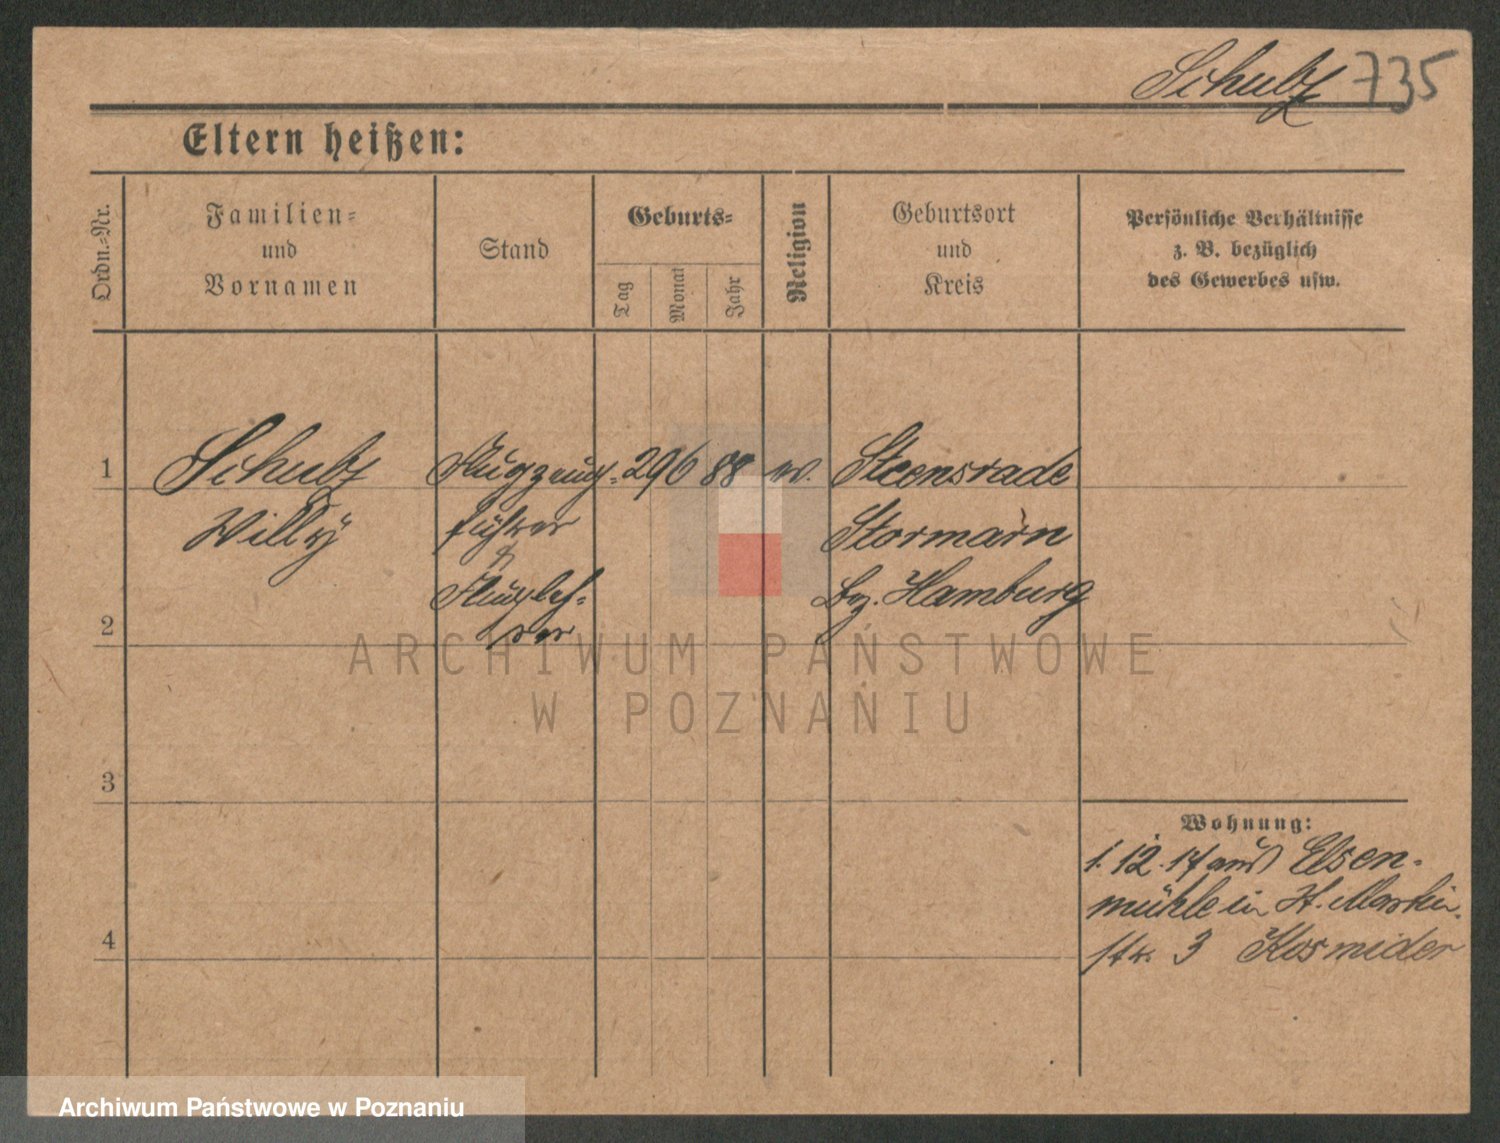 Schulz 735
Eltern heißen:
Ordn.-Nr.
Familien-
und
Vornamen
Stand
Geburts-
Tag
Monat
Jahr
Religion
Geburtsort
und
Kreis
Persönliche Verhältnisse
z. B. bezüglich
des Gewerbes usw.
1 Schulz Flugzeug- 29 6 88 Steensrade
Willy führer Stormarn
&
Flugleh- Bz. Hamburg
2 rer
3
Wohnung:
1.12.17 aus Elsen-
mühle in St. Martin
4 str. 3 Kosmider
ARCHIWUM PAŃSTWOWE
W POZNANIU
Archiwum Państwowe w Poznaniu